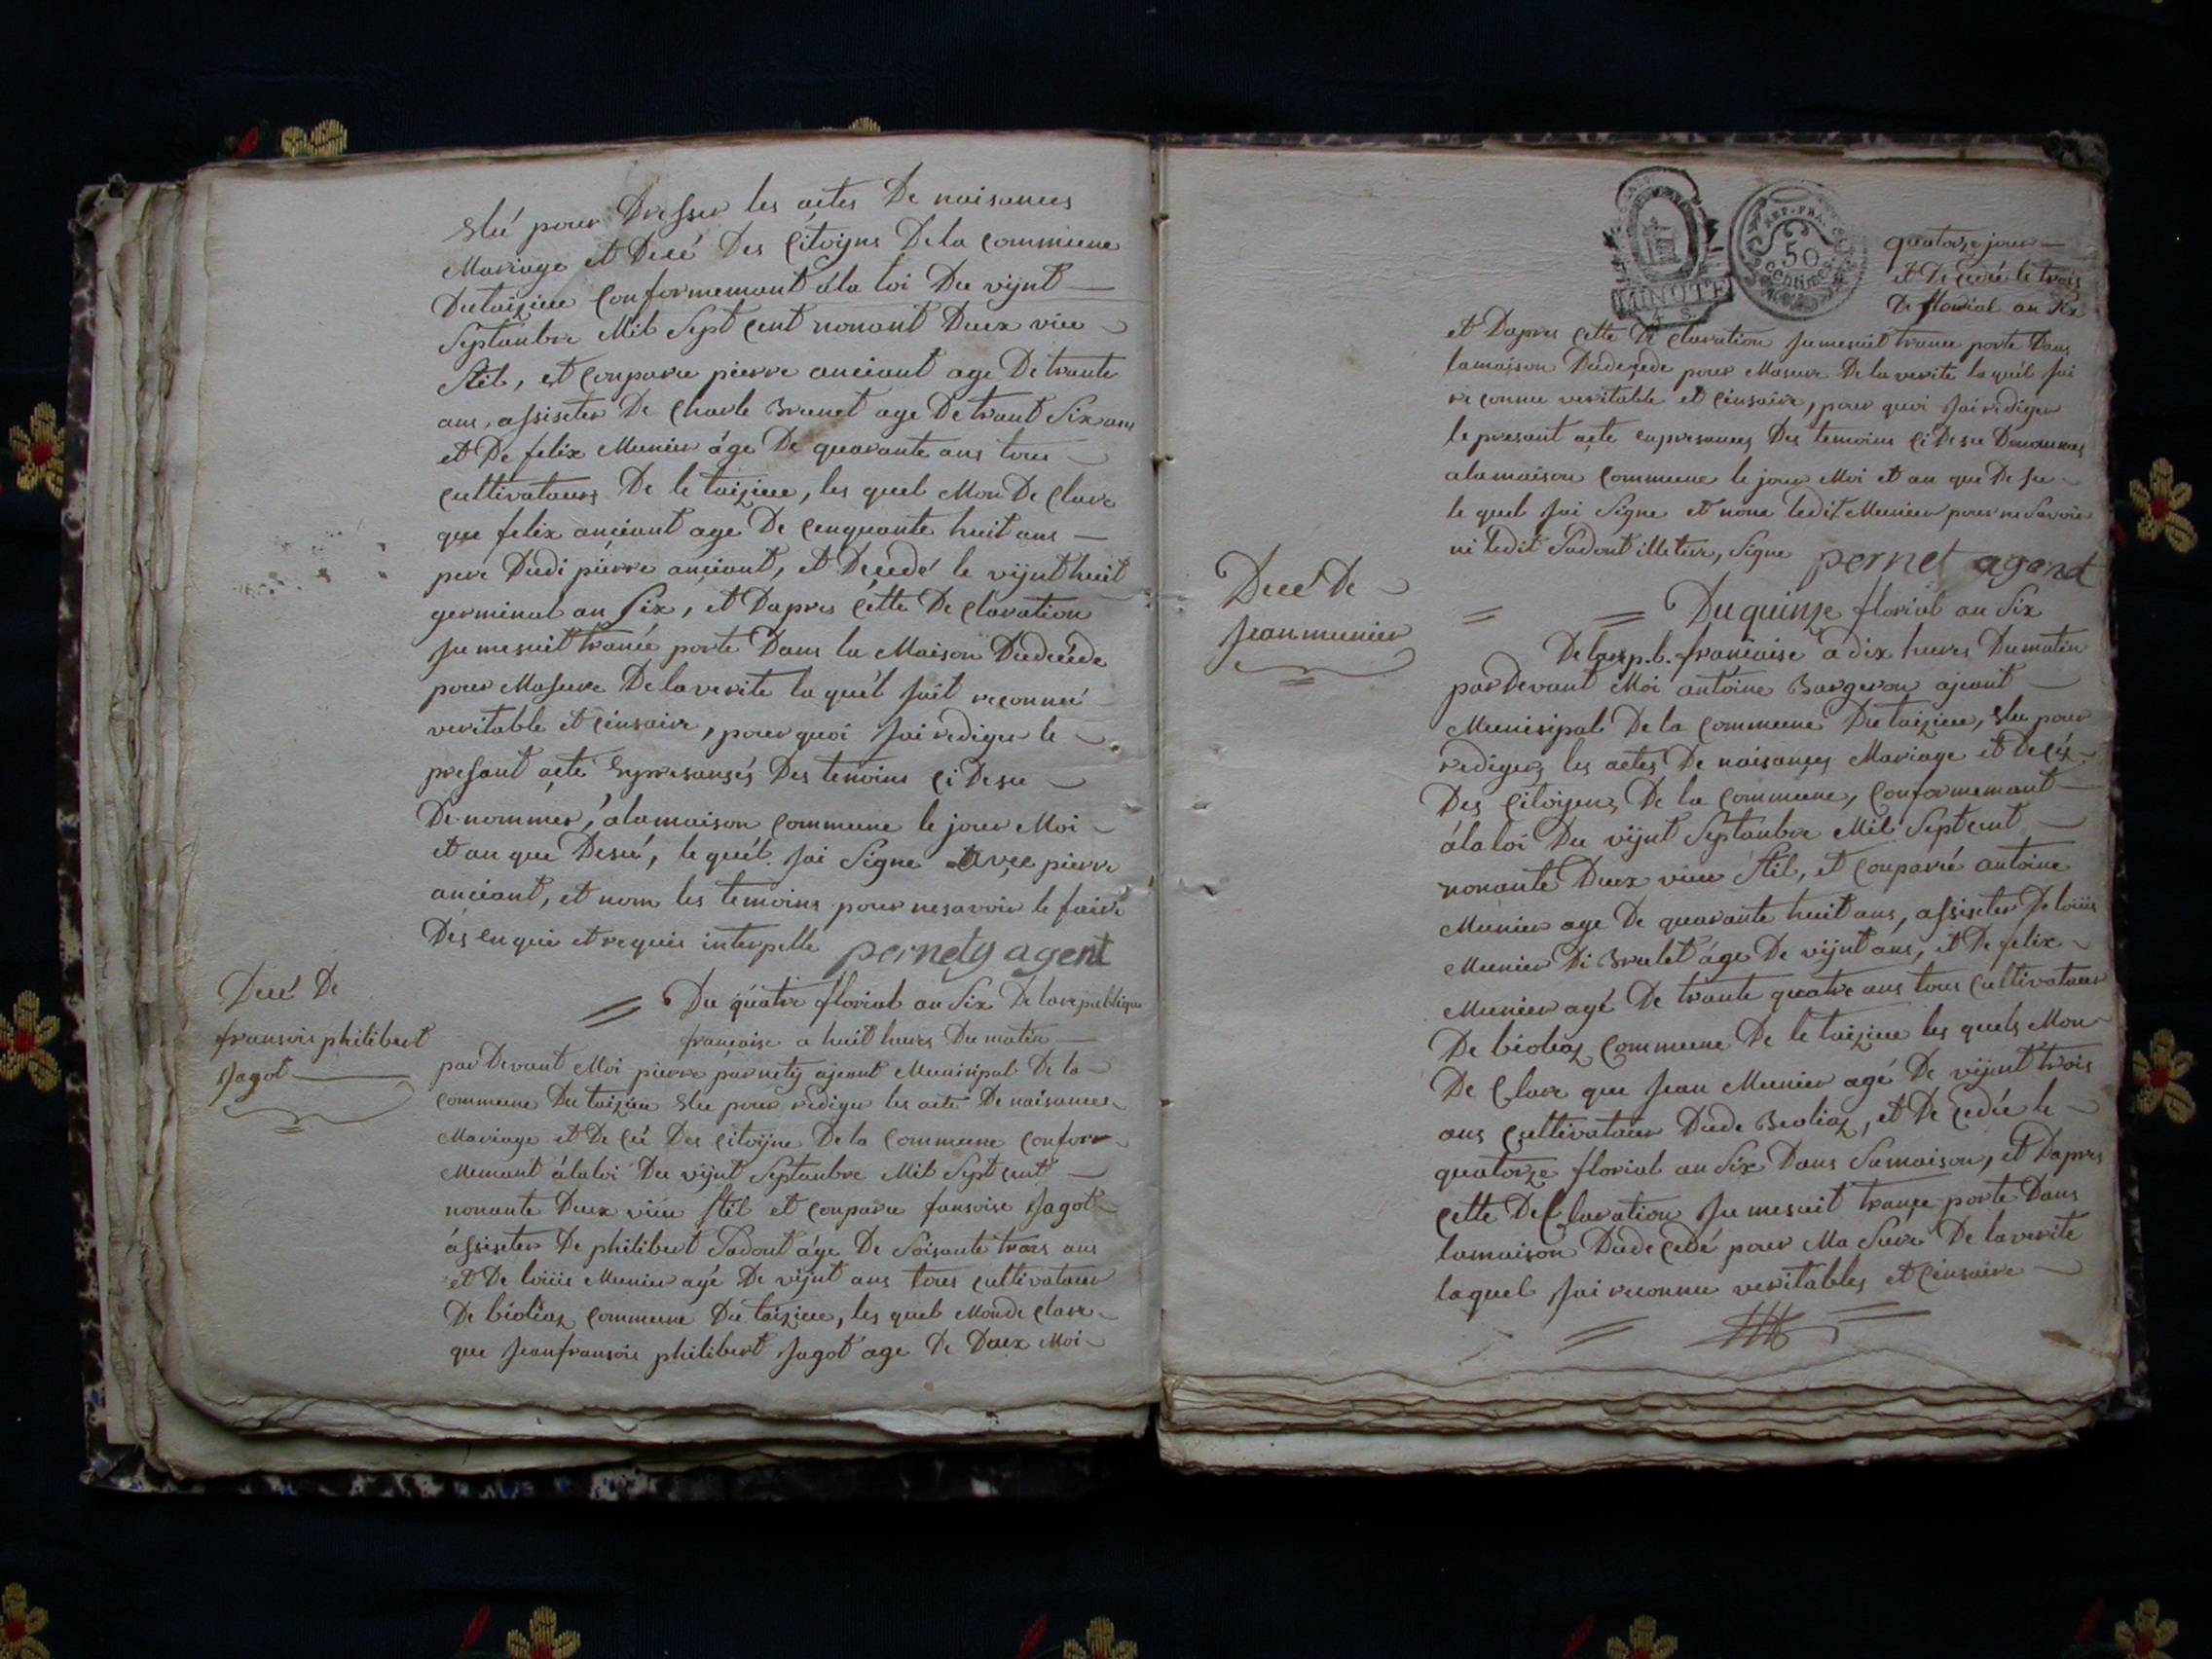 Elué pour Dresser les actes De naisances
Mariage et Decé Des Citoÿns De la Commune
Du taiziere Conformemant á la loi Du vijnt
Septanbre Mil Sept Cent nonant Deux vieu
Stil, et Conparu pierre anciant age De trante
ans, assisster De Charle Brunet age De trant Six ans
et De felix Munier áge De quarante ans tous
Cultivataurs De le taiziere, les quel Mon De Clare
que felix anciant age De Cenquante huit ans
peré Dudi pierre anciant, et Decedé le vijnt huit
germinal an Six, et Dapres Cette De Claration
Je me suit tranée porte Dans la Maison Dudecéde
pour Masure De la verite la quél Jait reconnué
veritable et Cinsaire, pour quoi Jai rediger le
presant acte Enpresansés Des temoins Ci Desu
De nommer, á la maison Commune le jour Moi
et an que Desué, le quél Jai Signe Avec pierre
anciant, et nom les temoins pour ne savoir le faire
Dés enqui et requis interpelle pernety agent
Decé De
fransois philibert
Jagot
Du quátre florial an Six De la republique
française a huit heures Du matin
par Devant Moi pierre parnetÿ ajeant Munisipal De la
Commune Du taiziere Elu pour rediger les acte De naisances
Mariage et De Cé Des Citoÿne De la Commune Confor
Memant á la loi Du vijnt Septanbre Mil Sept Cent
nonante Deux viéu Stil et Conparu fansoise Jagot
ássister De philibert Sadout áge De Soisante trois ans
et De loiiis Munier agé De vijnt ans tous Cultivataur
De bioléaz Commune Du taiziere, les quel Mon de Clare
que Jean fransois philibert Jagot age De Deux Moi
MINUTE
4 S.
REP. FRA.
50
Centimes
quatorze jour
et De cedé le trois
De florial an Six
et Dapres Cette De Claration Je me suit tranee porte Dans
la maison Dudecede pour Masure De la verite la quél Jai
reconnu veritable et Cinsaire, pour quoi Jai rediger
le presant acte enpresances Des temoins Ci Desu Denommes
a la maison Commune le jour Moi et an que De su
le quel Jai Signe et nom ledit Munier pour ne Savoir
ni ledit Sadout illetere, Signe pernet agent
Decé De
Jean munier
Du quinze florial an Six
De la rep.b. franciaise a dix heures Du matin
par Devant Moi antoine Bargeron ajeant
Munisipal De la Commune Du taiziere, Elu pour
rediger les actes De naisances Mariage et Decés
Des Citoiyens De la Commune, Conformemant
á la loi Du vijnt Septanbre Mil Sept cent
nonante Deux vieu Stil, et Conparué antoine
Munier age De quarante huit ans, assisster De loiiis
Munier Di Brulet áge De vijnt ans, et De felix
Munier agé De trante quatre ans tous Cultivataur
De béoliaz Commune De le taiziere les quels Mon
De Clare que Jean Munier agé De vijnt trois
ans Cultivataur Dude Beoliaz, et De cedée le
quatorze florial an Six Dans Sa maison, et Dapres
Cette DeClaration Je me suit trançe porte Dans
la maison Dude Cedé pour Ma Sure De la verite
laquel Jai reconnu veritables et Cinsaire